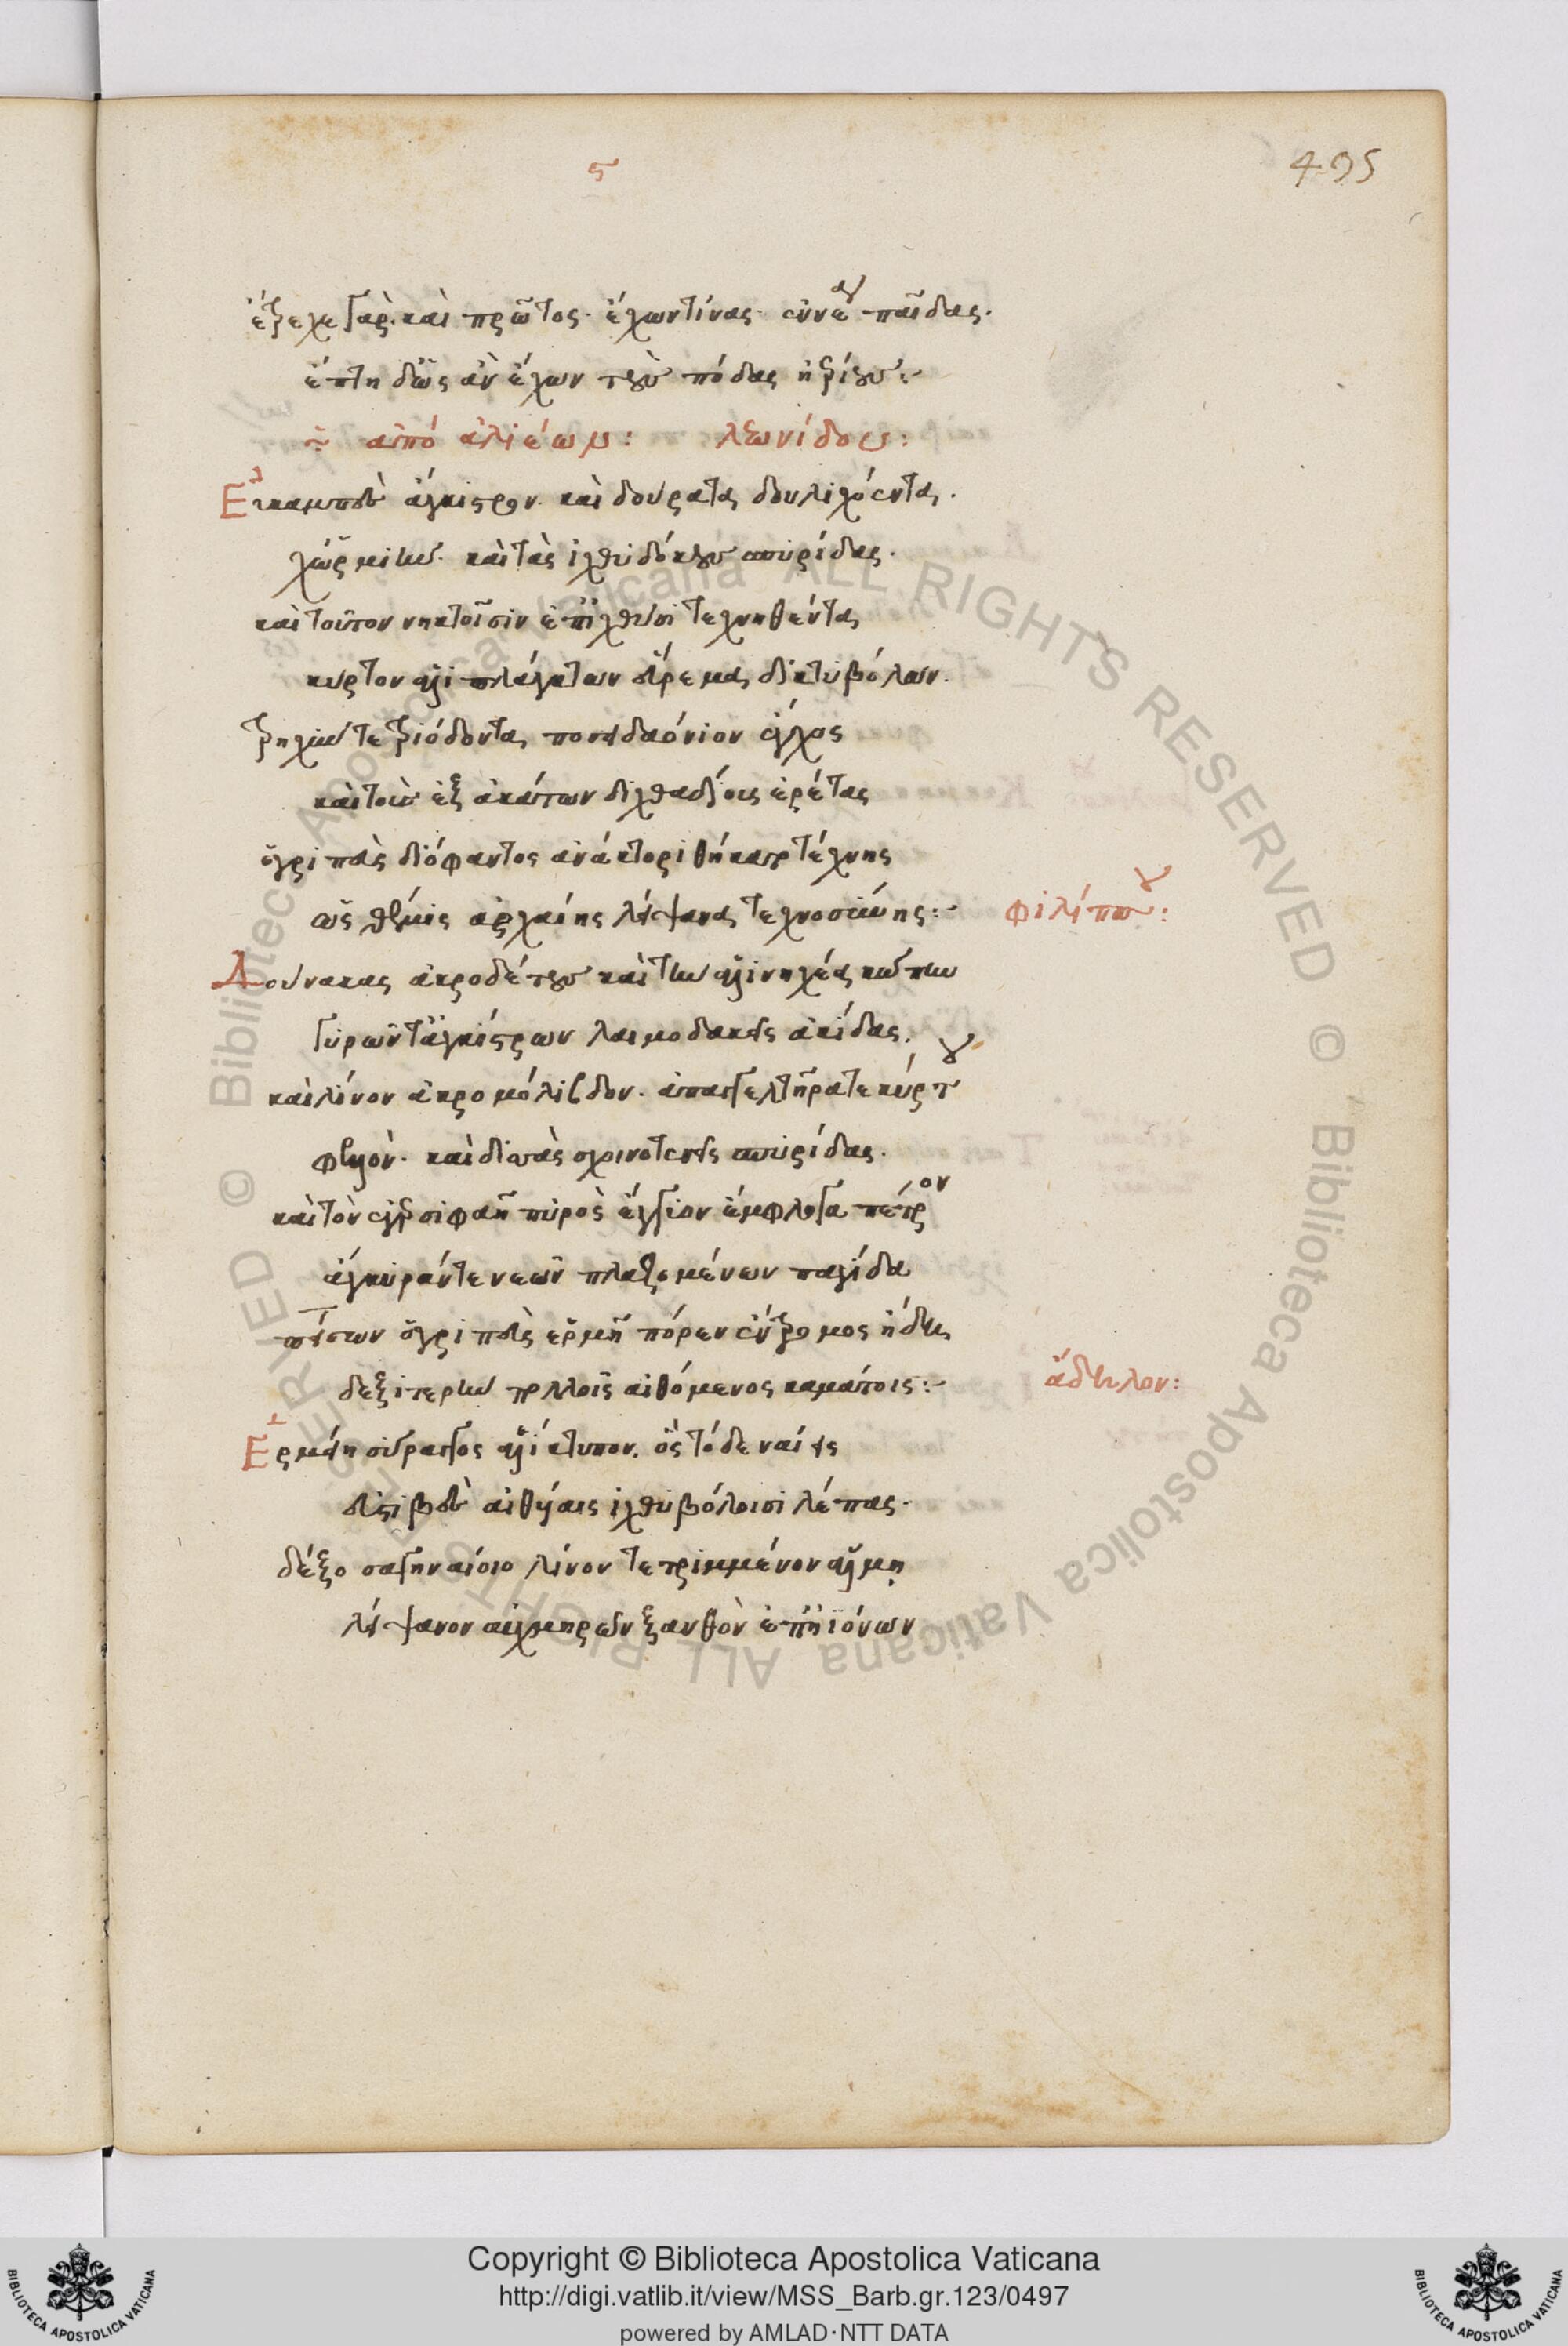 ϛ
495
ἔτρεχε γὰρ. καὶ πρῶτος. ἔχων τίνας. ἐννέα παῖδας.
ἔστη δ' ὡς ἀν ἔχων τοὺς πόδας ἡμ
ϛ ἀπὸ ἁλιέων: λεωνίδου:
Εὐκαμπὲς ἄγκιστρον. καὶ δούρατα δουλιχόεντα.
χ' ὡρμιὴν. καὶ τὰς ἰχθυδόκους σπυρίδας.
καὶ τοῦτον νηκτοῖσιν ἐπ' ἰχθύσι τεχνηθέντα
κύρτον ἁλιπλάγκτων εὕρεμα δικτυβόλων.
τρηχύν τε τριόδοντα ποσειδαόνιον ἔγχος
καὶ τοὺς ἐξ ἀκάτων διχθαδίους ἐρέτας
ὁ γριπεὺς διόφαντος ἀνάκτορι θήκατο τέχνης
ὡς θέμις ἀρχαίης λείψανα τεχνοσύνης:~
φιλίππου:
Δούνακας ἀκροδέτους καὶ τὴν ἁλινηχέα κώπην
γυρῶν τ' ἀγκίστρων λαιμοδακεῖς ἀκίδας.
καὶ λίνον ἀκρομόλιβδον. ἀπαγγελτῆρά τε κύρτου
φελλὸν. καὶ δισσὰς σχοινοτενεῖς σπυρίδας.
καὶ τὸν ἐγερσιφαῆ πυρὸς ἔγγιον ἔμφλογα πέτρον
ἄγκυράν τε νεῶν πλαζομένων παγίδα
πείσων ὁ γριπεὺς ἑρμῆ πόρεν ἔντρομος ἤδη
δεξιτερὴν πολλοῖς αἰθόμενος καμάτοις:~
ἄδηλον:
Ἑρμείη σύραγγος ἁλίκτυπον. ὃς τόδε ναίεις
εὐστιβὲς αἰθυίαις ἰχθυβόλοισι λέπας.
δέξο σαγηναίοιο λίνον τετριμμένον ἅλμῃ
λείψανον αὐχμηρῶν ξανθὸν ἐπ' ἠϊόνων
Copyright © Biblioteca Apostolica Vaticana
http://digi.vatlib.it/view/MSS_Barb.gr.123/0497
powered by AMLAD·NTT DATA
BIBLIOTECA APOSTOLICA VATICANA
BIBLIOTECA APOSTOLICA VATICANA
© Biblioteca Apostolica Vaticana ALL RIGHTS RESERVED © Biblioteca Apostolica Vaticana ALL RIGHTS RESERVED